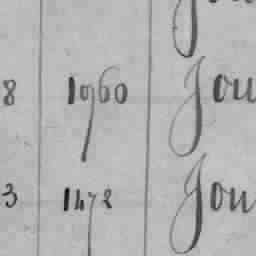 8 1960 Jou
3 1478 Jou